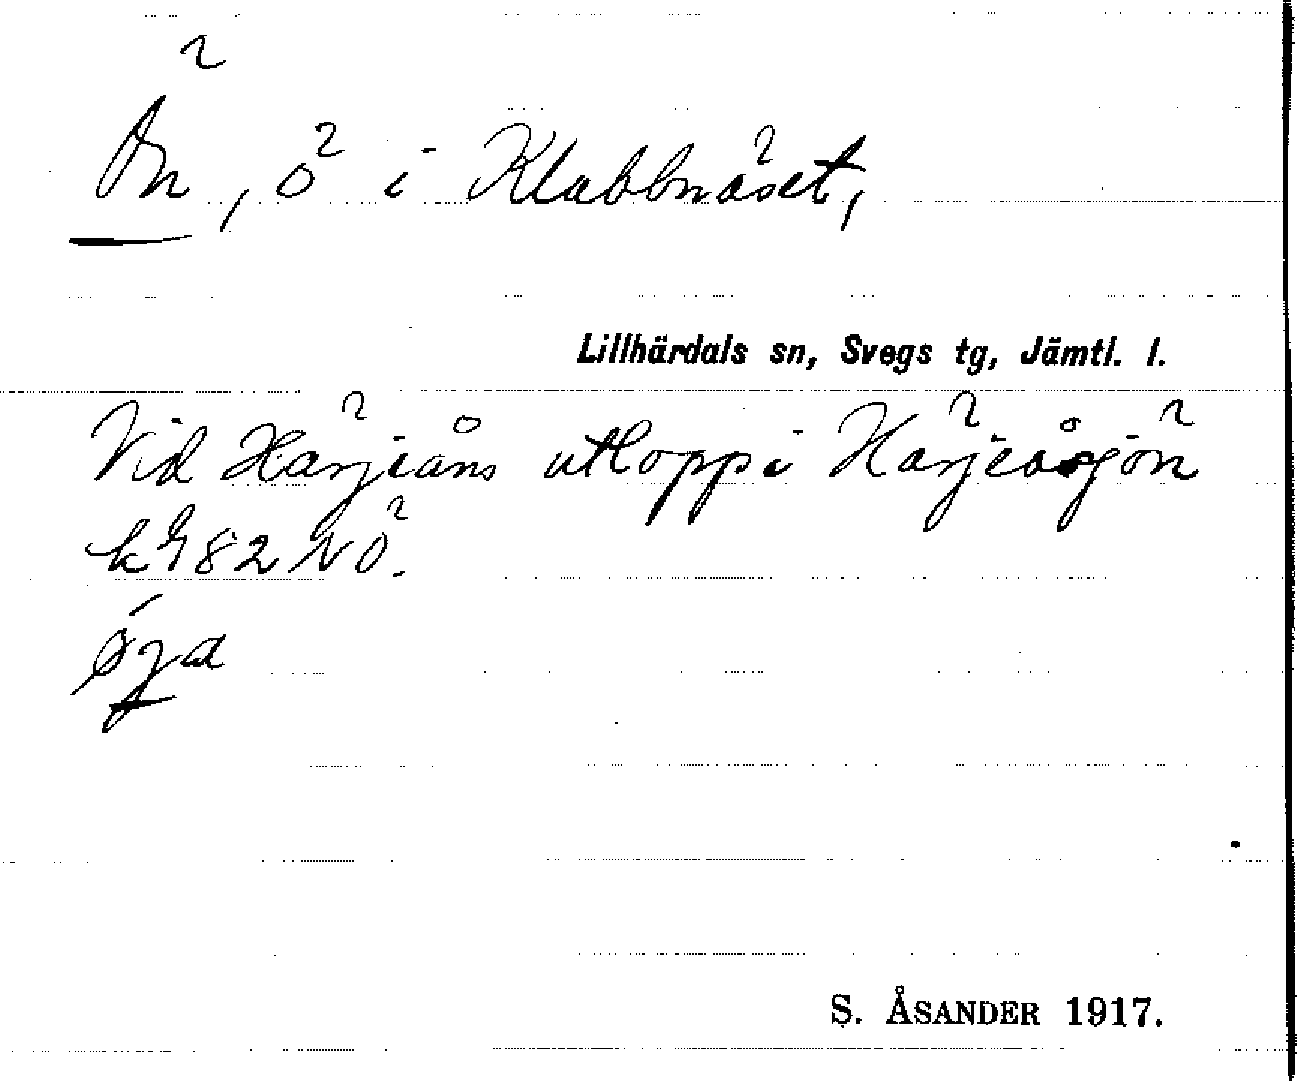 Ön, ö i Klabbnäset,
Lillhärdals sn, Svegs tg, Jämtl. l.
Vid Härjeåns utlopp i Härjeåsjön
k 982 NÖ.
S. ÅSANDER 1917.